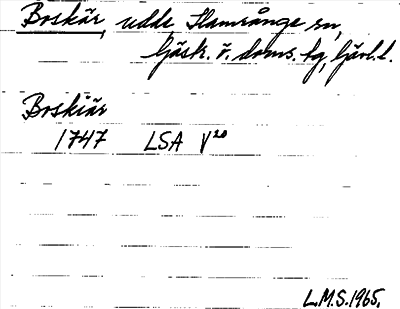 Boskär, udde Hamrånge sn,
Gästr. ö. doms. tg, Gävl. l.
Boskiär
1747 LSA V²⁰
L.M.S. 1965.